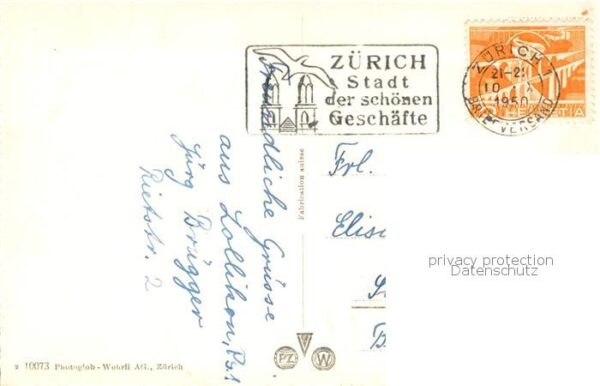 ZÜRICH
Stadt
der schönen
Geschäfte
ZÜRICH 1
21-2
10 X
1950
BRIEFVERSAND
HELVETIA
Freundliche Grüsse
aus Zollikon,
Jürg Brügger
Rietstr. 2
Fabrication suisse
Frl.
Elis
privacy protection
Datenschutz
PZ W
10073 Photoglob-Wehrli AG., Zürich